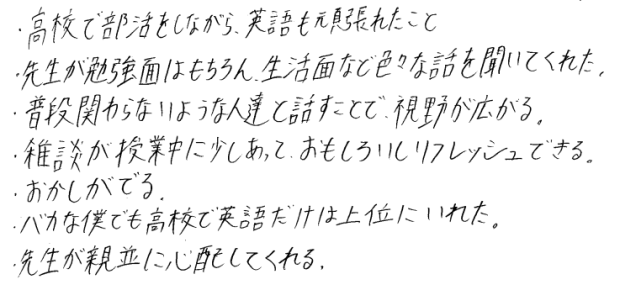 ・高校で部活をしながら、英語も頑張れたこと
・先生が勉強面はもちろん、生活面など色々な話を聞いてくれた。
・普段関わらないような人達と話すことで、視野が広がる。
・雑談が授業中に少しあって、おもしろいしリフレッシュできる。
・おかしがでる。
・バカな僕でも高校で英語だけは上位にいれた。
・先生が親並に心配してくれる。